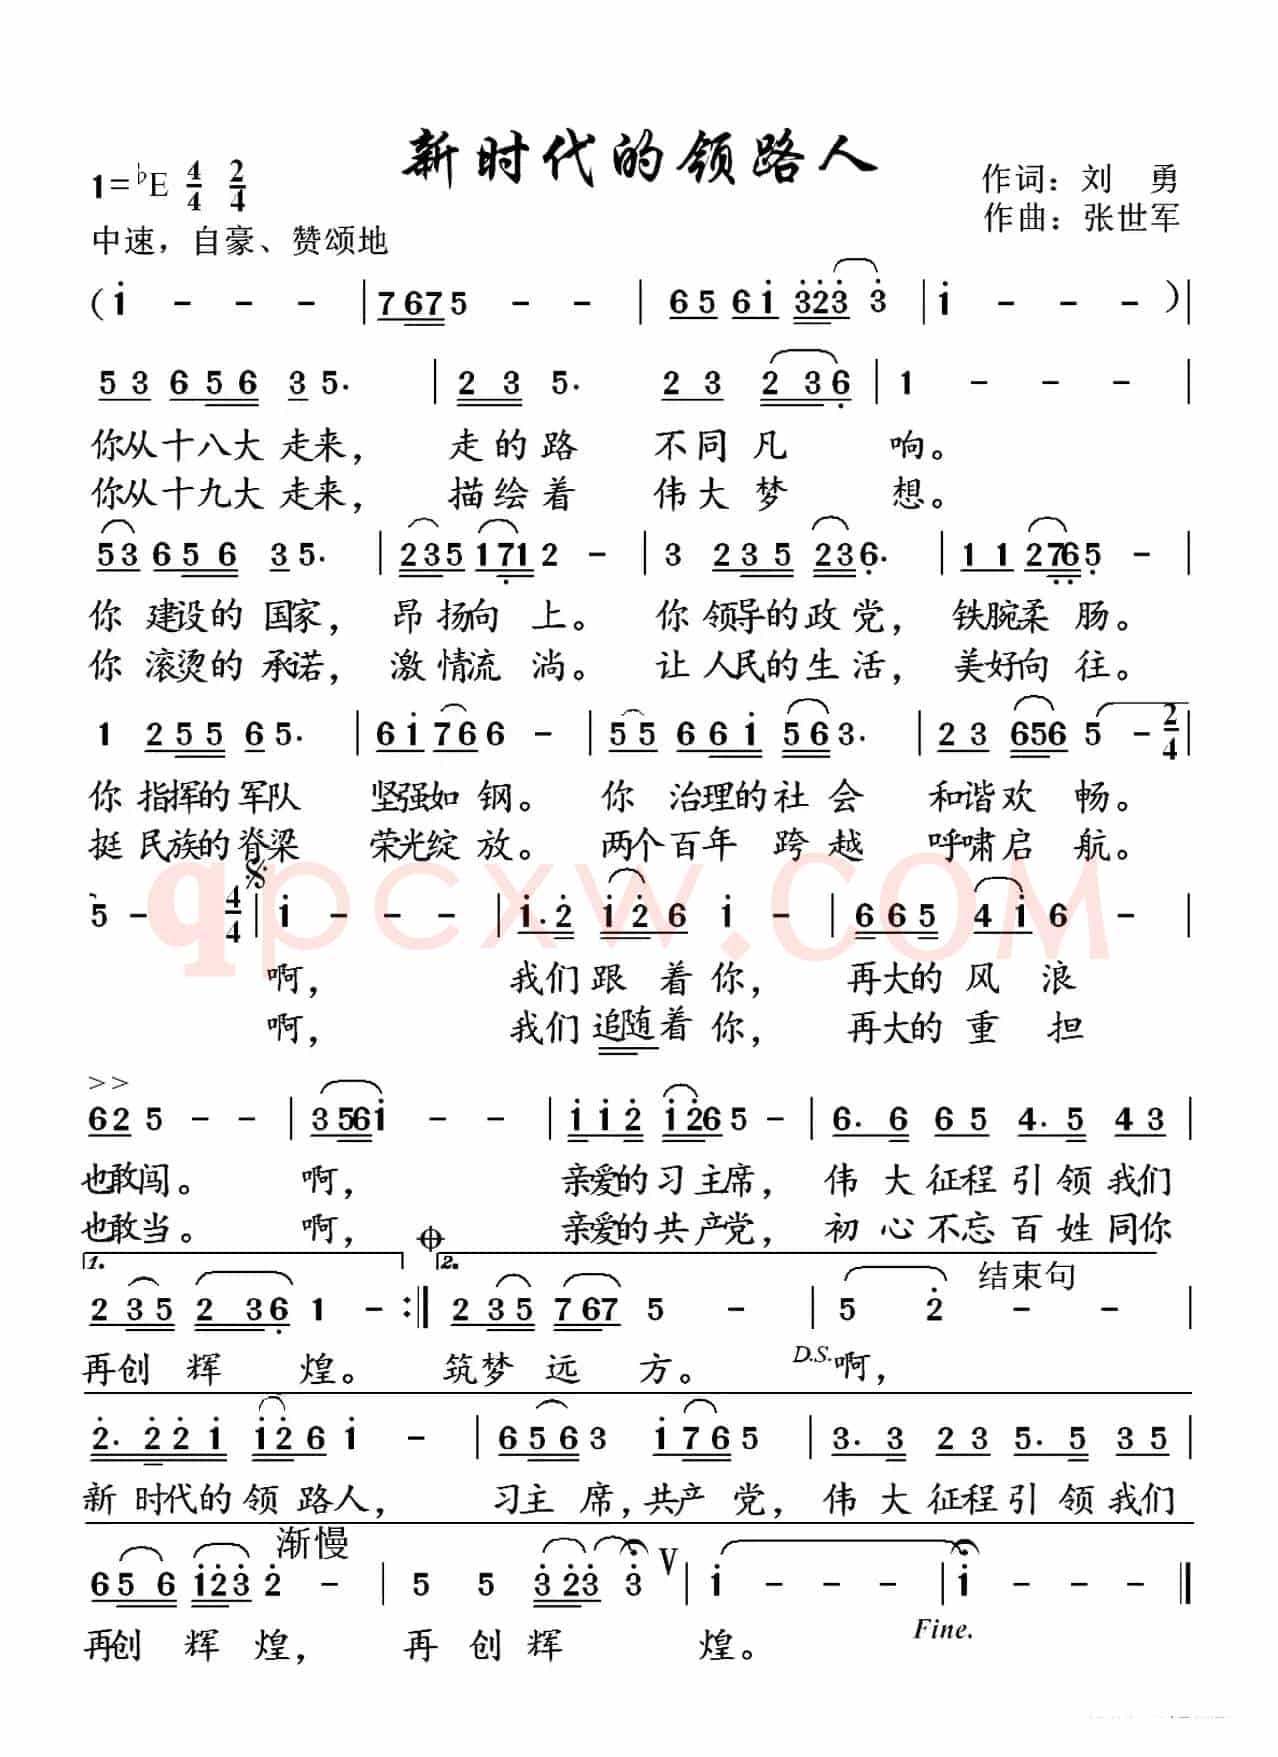 新时代的领路人
1=♭E 4/4 2/4
作词：刘　勇
作曲：张世军
中速，自豪、赞颂地
( i - - - | 7 6 7 5 - - | 6 5 6 i 3 2 3 3 | i - - - ) |
5 3 6 5 6 3 5. | 2 3 5. 2 3 2 3 6 | 1 - - - |
你从十八大走来， 走的路 不同凡 响。
你从十九大走来， 描绘着 伟大梦 想。
5 3 6 5 6 3 5. | 2 3 5 1 7 1 2 - | 3 2 3 5 2 3 6. | 1 1 2 7 6 5 - |
你 建设的 国家， 昂扬向 上。 你 领导的政党， 铁腕柔 肠。
你 滚烫的 承诺， 激情流 淌。 让 人民的生活， 美好向 往。
1 2 5 5 6 5. | 6 i 7 6 6 - | 5 5 6 6 i 5 6 3. | 2 3 6 5 6 5 - 2/4 |
你 指挥的军队 坚强如 钢。 你 治理的社会 和谐欢 畅。
挺 民族的脊梁 荣光绽 放。 两个百年 跨越 呼啸启 航。
qpcxw.COM
5 - 4/4 | i - - | i. 2 i 2 6 i - | 6 6 5 4 i 6 - |
啊， 我们跟 着你， 再大的 风 浪
啊， 我们追随着你， 再大的 重 担
> >
6 2 5 - - | 3 5 6 i - - | i i 2 i 2 6 5 - | 6. 6 6 5 4. 5 4 3 |
也敢闯。 啊， 亲爱的习主席， 伟大征程引领我们
也敢当。 啊， 亲爱的共产党， 初心不忘百姓同你
1. 2. 结束句
2 3 5 2 3 6 1 - :‖ 2 3 5 7 6 7 5 - | 5 2 - - |
再创 辉 煌。 筑梦远 方。 D.S. 啊，
2. 2 2 i i 2 6 i - | 6 5 6 3 i 7 6 5 | 3. 3 2 3 5. 5 3 5 |
新时代的领路人， 习主席，共产党， 伟大征程引领我们
渐慢
6 5 6 i 2 3 2 - | 5 5 3 2 3 3 V | i - - - | i - - - ‖
再创 辉 煌， 再创辉 煌。 Fine.